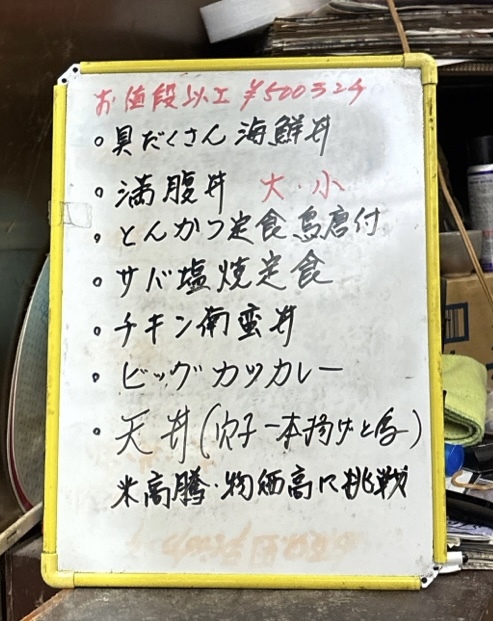 お値段以上 ¥500ランチ
○具だくさん海鮮丼
○満腹丼 大・小
○とんかつ定食鳥唐付
○サバ塩焼定食
○チキン南蛮丼
○ビッグカツカレー
○天丼(穴子一本揚げと鳥)
米高騰・物価高に挑戦